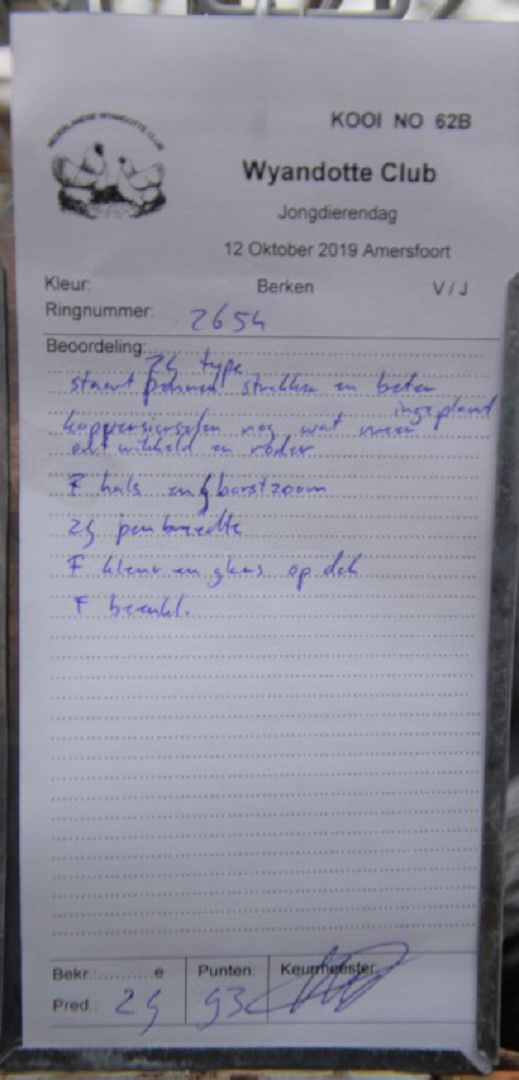 NEDERLANDSE WYANDOTTE CLUB
KOOI NO 62B
Wyandotte Club
Jongdierendag
12 Oktober 2019 Amersfoort
Kleur: Berken V / J
Ringnummer: 2654
Beoordeling:
ZG type
staart pennen strakker en beter
ingeplant
kopversierselen nog wat meer
ontwikkeld en roder
F hals en borstzoom
ZG penbreedte
F kleur en glans op dek
F beenkl.
Bekr.:...........e Punten: Keurmeester:
Pred.: ZG 93